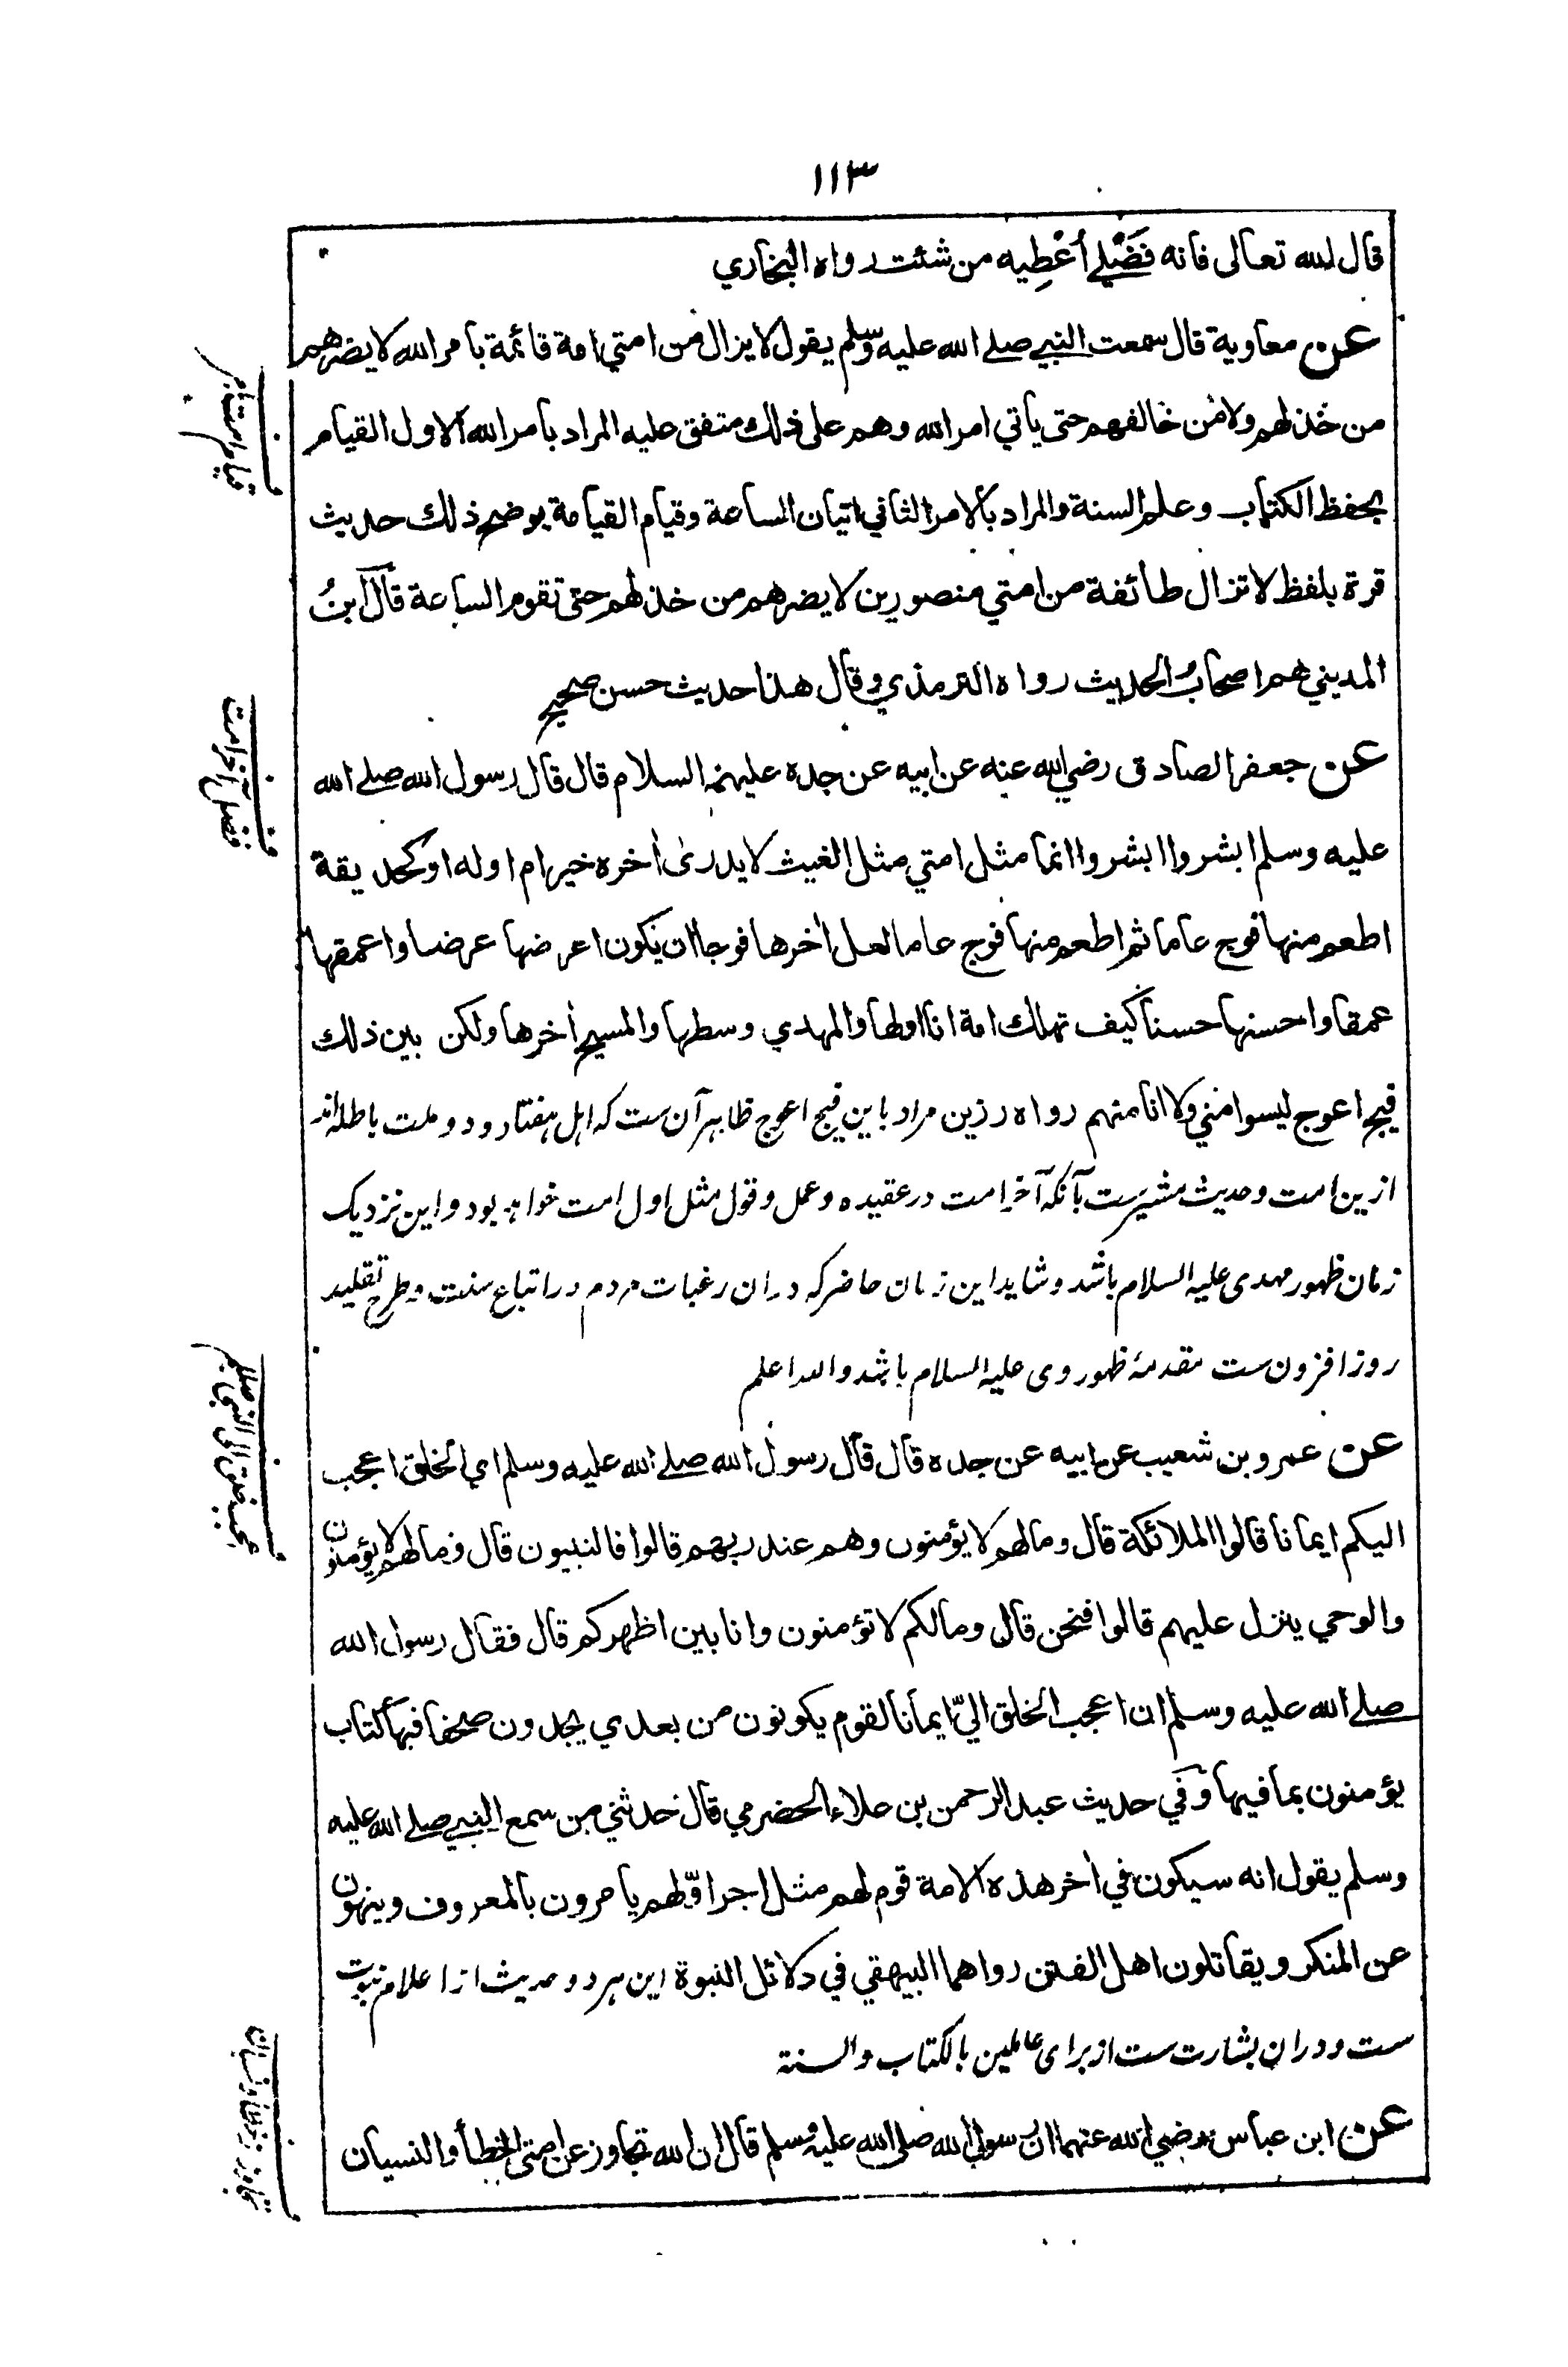 ١١٣
قال الله تعالى فانه فَضْلِي أُعْطِيه من شئت رواه البخاري
عن معاوية قال سمعت النبي صلى الله عليه وسلم يقول لا يزال من امتي امة قائمة بامر الله لا يضرهم
من خذلهم ولا من خالفهم حتى ياتي امر الله وهم على ذلك متفق عليه المراد بامر الله الاول القيام
بحفظ الكتاب وعلم السنة والمراد بالامر الثاني اتيان الساعة وقيام القيامة يوضح ذلك حديث
قرة بلفظ لا تزال طائفة من امتي منصورين لا يضرهم من خذلهم حتى تقوم الساعة قال ابنُ
المديني هم اصحابُ الحديث رواه الترمذي وقال هذا حديث حسن صحيح
عن جعفر الصادق رضي الله عنه عن ابيه عن جده عليهم السلام قال قال رسول الله صلى الله
عليه وسلم ابشروا ابشروا انما مثل امتي مثل الغيث لا يدرى أخره خير ام اوله او كحديقة
اطعم منها فوج عاما ثم اطعم منها فوج عاما لعل أخرها فوجا ان يكون اعرضها عرضا واعمقها
عمقا واحسنها حسنا كيف تهلك امة انا اولها والمهدي وسطها والمسيح أخرها ولكن بين ذلك
فيج اعوج ليسوا مني ولا انا منهم رواه رزين مراد باين فيج اعوج ظاهر آن ست كه اهل هفتاد و دو ملت باطله اند
ازين امت وحديث مشيرست بآنكه آخر امت در عقيده وعمل وقول مثل اول امت خواهد بود واين نزديك
زمان ظهور مهدى عليه السلام باشد وشايد اين زمان حاضر كه دران رغبات مردم در اتباع سنت وطرح تقليد
روز افزون ست مقدمۀ ظهور وى عليه السلام باشد والله اعلم
عن عمرو بن شعيب عن ابيه عن جده قال قال رسول الله صلى الله عليه وسلم اي الخلق اعجب
اليكم ايمانا قالوا الملائكة قال وما لهم لا يؤمنون وهم عند ربهم قالوا فالنبيون قال وما لهم لا يؤمنون
والوحي ينزل عليهم قالوا فنحن قال وما لكم لا تؤمنون وانا بين اظهركم قال فقال رسول الله
صلى الله عليه وسلم ان اعجب الخلق اليّ ايمانا لقوم يكونون من بعدي يجدون صحفا فيها كتاب
يؤمنون بما فيها وفي حديث عبد الرحمن بن علاء الحضرمي قال حدثني من سمع النبي صلى الله عليه
وسلم يقول انه سيكون في أخر هذه الامة قوم لهم مثل اجر اوّلهم يامرون بالمعروف وينهون
عن المنكر ويقاتلون اهل الفتن رواهما البيهقي في دلائل النبوة اين هر دو حديث از اعلام نبوت
ست ودران بشارت ست از براى عاملين بالكتاب والسنة
عن ابن عباس رضي الله عنهما ان رسول الله صلى الله عليه وسلم قال ان الله تجاوز عن امتى الخطأ والنسيان
ف
قيام امت بامر
ف
فضل آخر امت
ف
ف